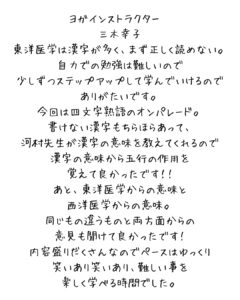 ヨガインストラクター
三木幸子
東洋医学は漢字が多く、まず正しく読めない。
自力での勉強は難しいので
少しずつステップアップして学んでいけるので
ありがたいです。
今回は四文字熟語のオンパレード。
書けない漢字もちらほらあって、
河村先生が漢字の意味を教えてくれるので
漢字の意味から五行の作用を
覚えて良かったです!!
あと、東洋医学からの意味と
西洋医学からの意味。
同じもの違うものと両方面からの
意見も聞けて良かったです!
内容盛りだくさんなのでペースはゆっくり
笑いあり笑いあり、難しい事を
楽しく学べる時間でした。